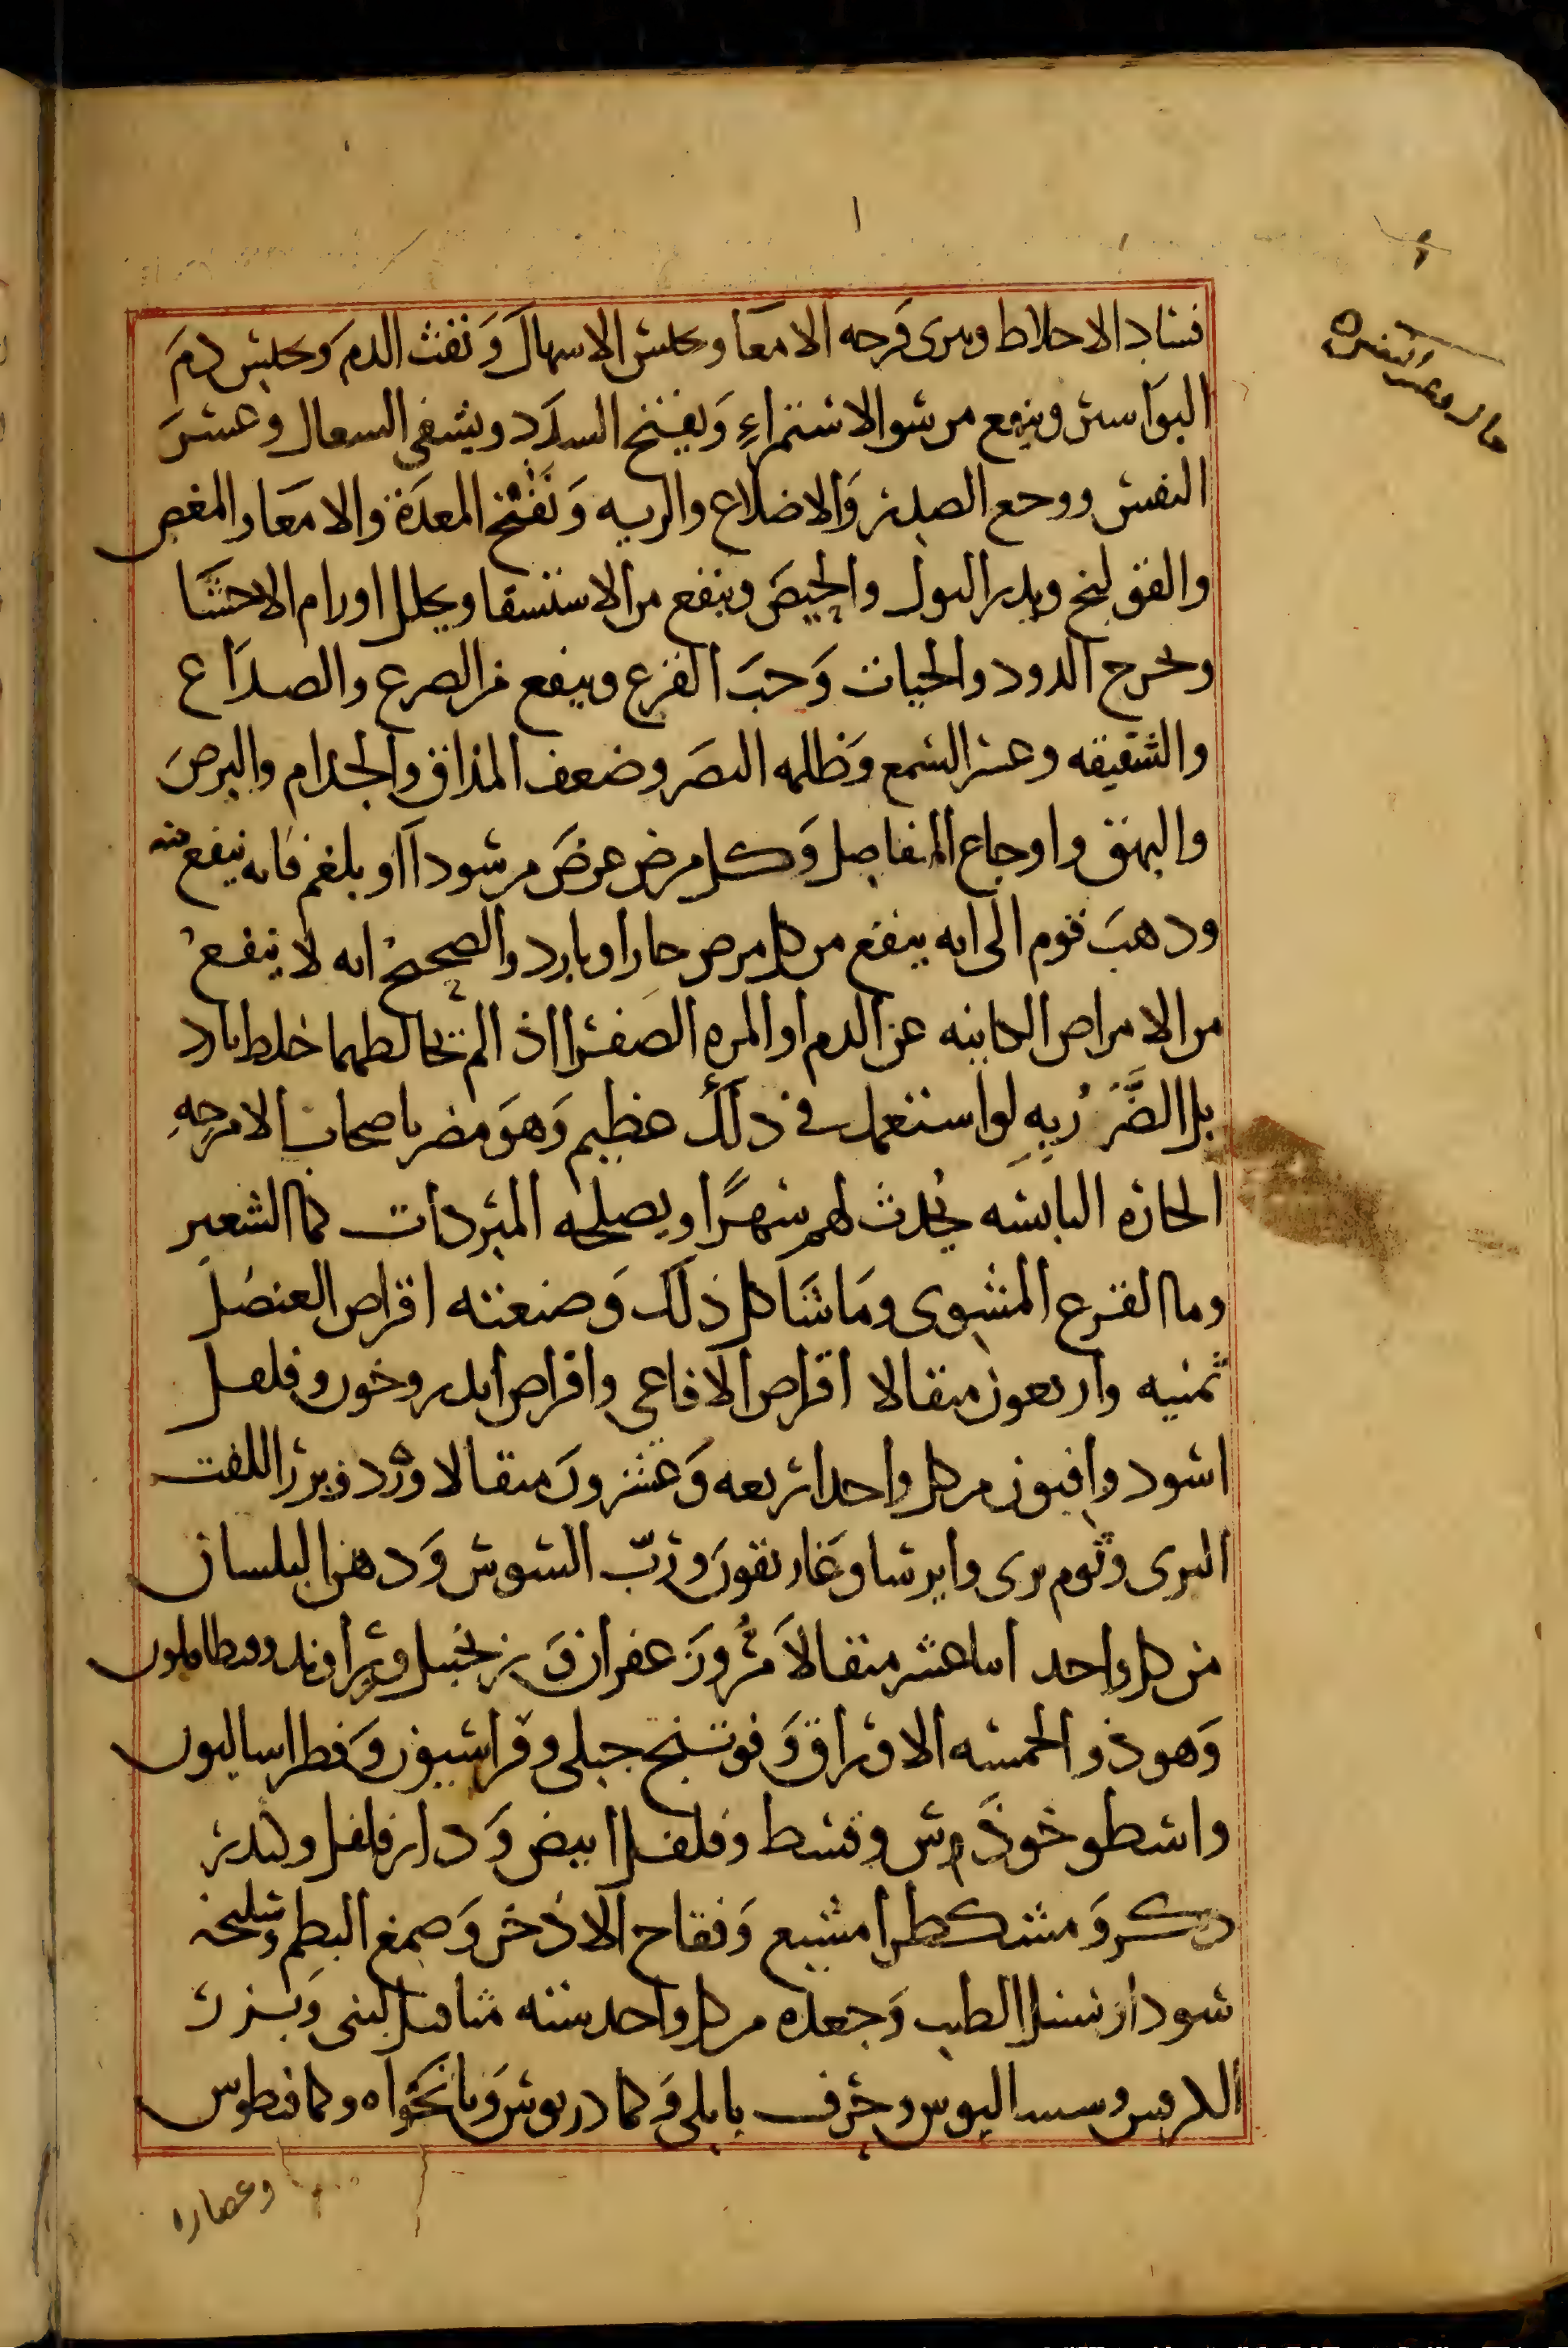 فساد الاخلاط ويبرى قرحه الامعا ويحبس الاسهال ونفث الدم ويحبس دم
البواسير وينفع من سو الاستمراء ويفتح السدد ويشفى السعال وعسر
النفس ووجع الصدر والاضلاع والريه ونفخ المعدة والامعا والمغص
والقولنج ويدر البول والحيض وينفع من الاستسقا ويحلل اورام الاحشا
ويخرج الدود والحيات وحب القرع وينفع من الصرع والصداع
والشقيقه وعسر السمع وظلمه البصر وضعف المذاق والجذام والبرص
والبهق واوجاع المفاصل وكل مرض عرض من سودا او بلغم فانه ينفع منه
وذهب قوم الى انه ينفع من كل مرض حار او بارد والصحيح انه لا ينفع
من الامراض الكاينه عن الدم او المره الصفرا اذا لم يخالطهما خلط بارد
بل الضرر به لو استعمل في ذلك عظيم وهو مضر باصحاب الامزجه
الحاره اليابسه يحدث لهم سهرا ويصلحه المبردات كما الشعير
وما القرع المشوى وما شاكل ذلك وصنعته اقراص العنصل
ثمنيه واربعون مثقالا اقراص الافاعى واقراص ايدروخون وفلفل
اسود وافيون من كل واحد اربعه وعشرون مثقالا ورد وبزر اللفت
البرى وثوم برى وايرسا وغاريقون ورب السوس ودهن البلسان
من كل واحد اثنا عشر مثقالا مر وزعفران وزنجبيل وراوند وبنطافلون
وهو ذو الخمسه الاوراق وفوتنج جبلى وفراسيون وفطراساليون
واسطوخودس وقسط وفلفل ابيض ودار فلفل وكندر
دكر ومشكطرامشيع وفقاح الاذخر وصمغ البطم وسليخه
سودا وسنبل الطيب وجعده من كل واحد سته مثاقيل لبنى وبزر
الكرفس وسساليوس وحرف بابلى وكمادريوس ونانخواه وكمافيطوس
وعصاره